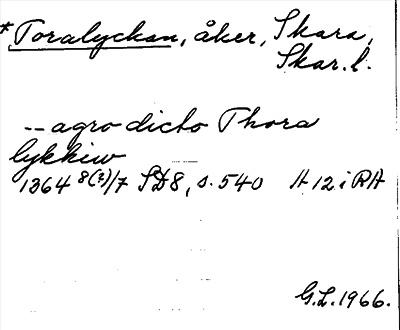 *Toralyckan, åker, Skara,
Skar. l.
-- agro dicto Thora
lykkiw
1364 8(?)/7 SD8, s. 540 A 12 i RA
G.L. 1966.